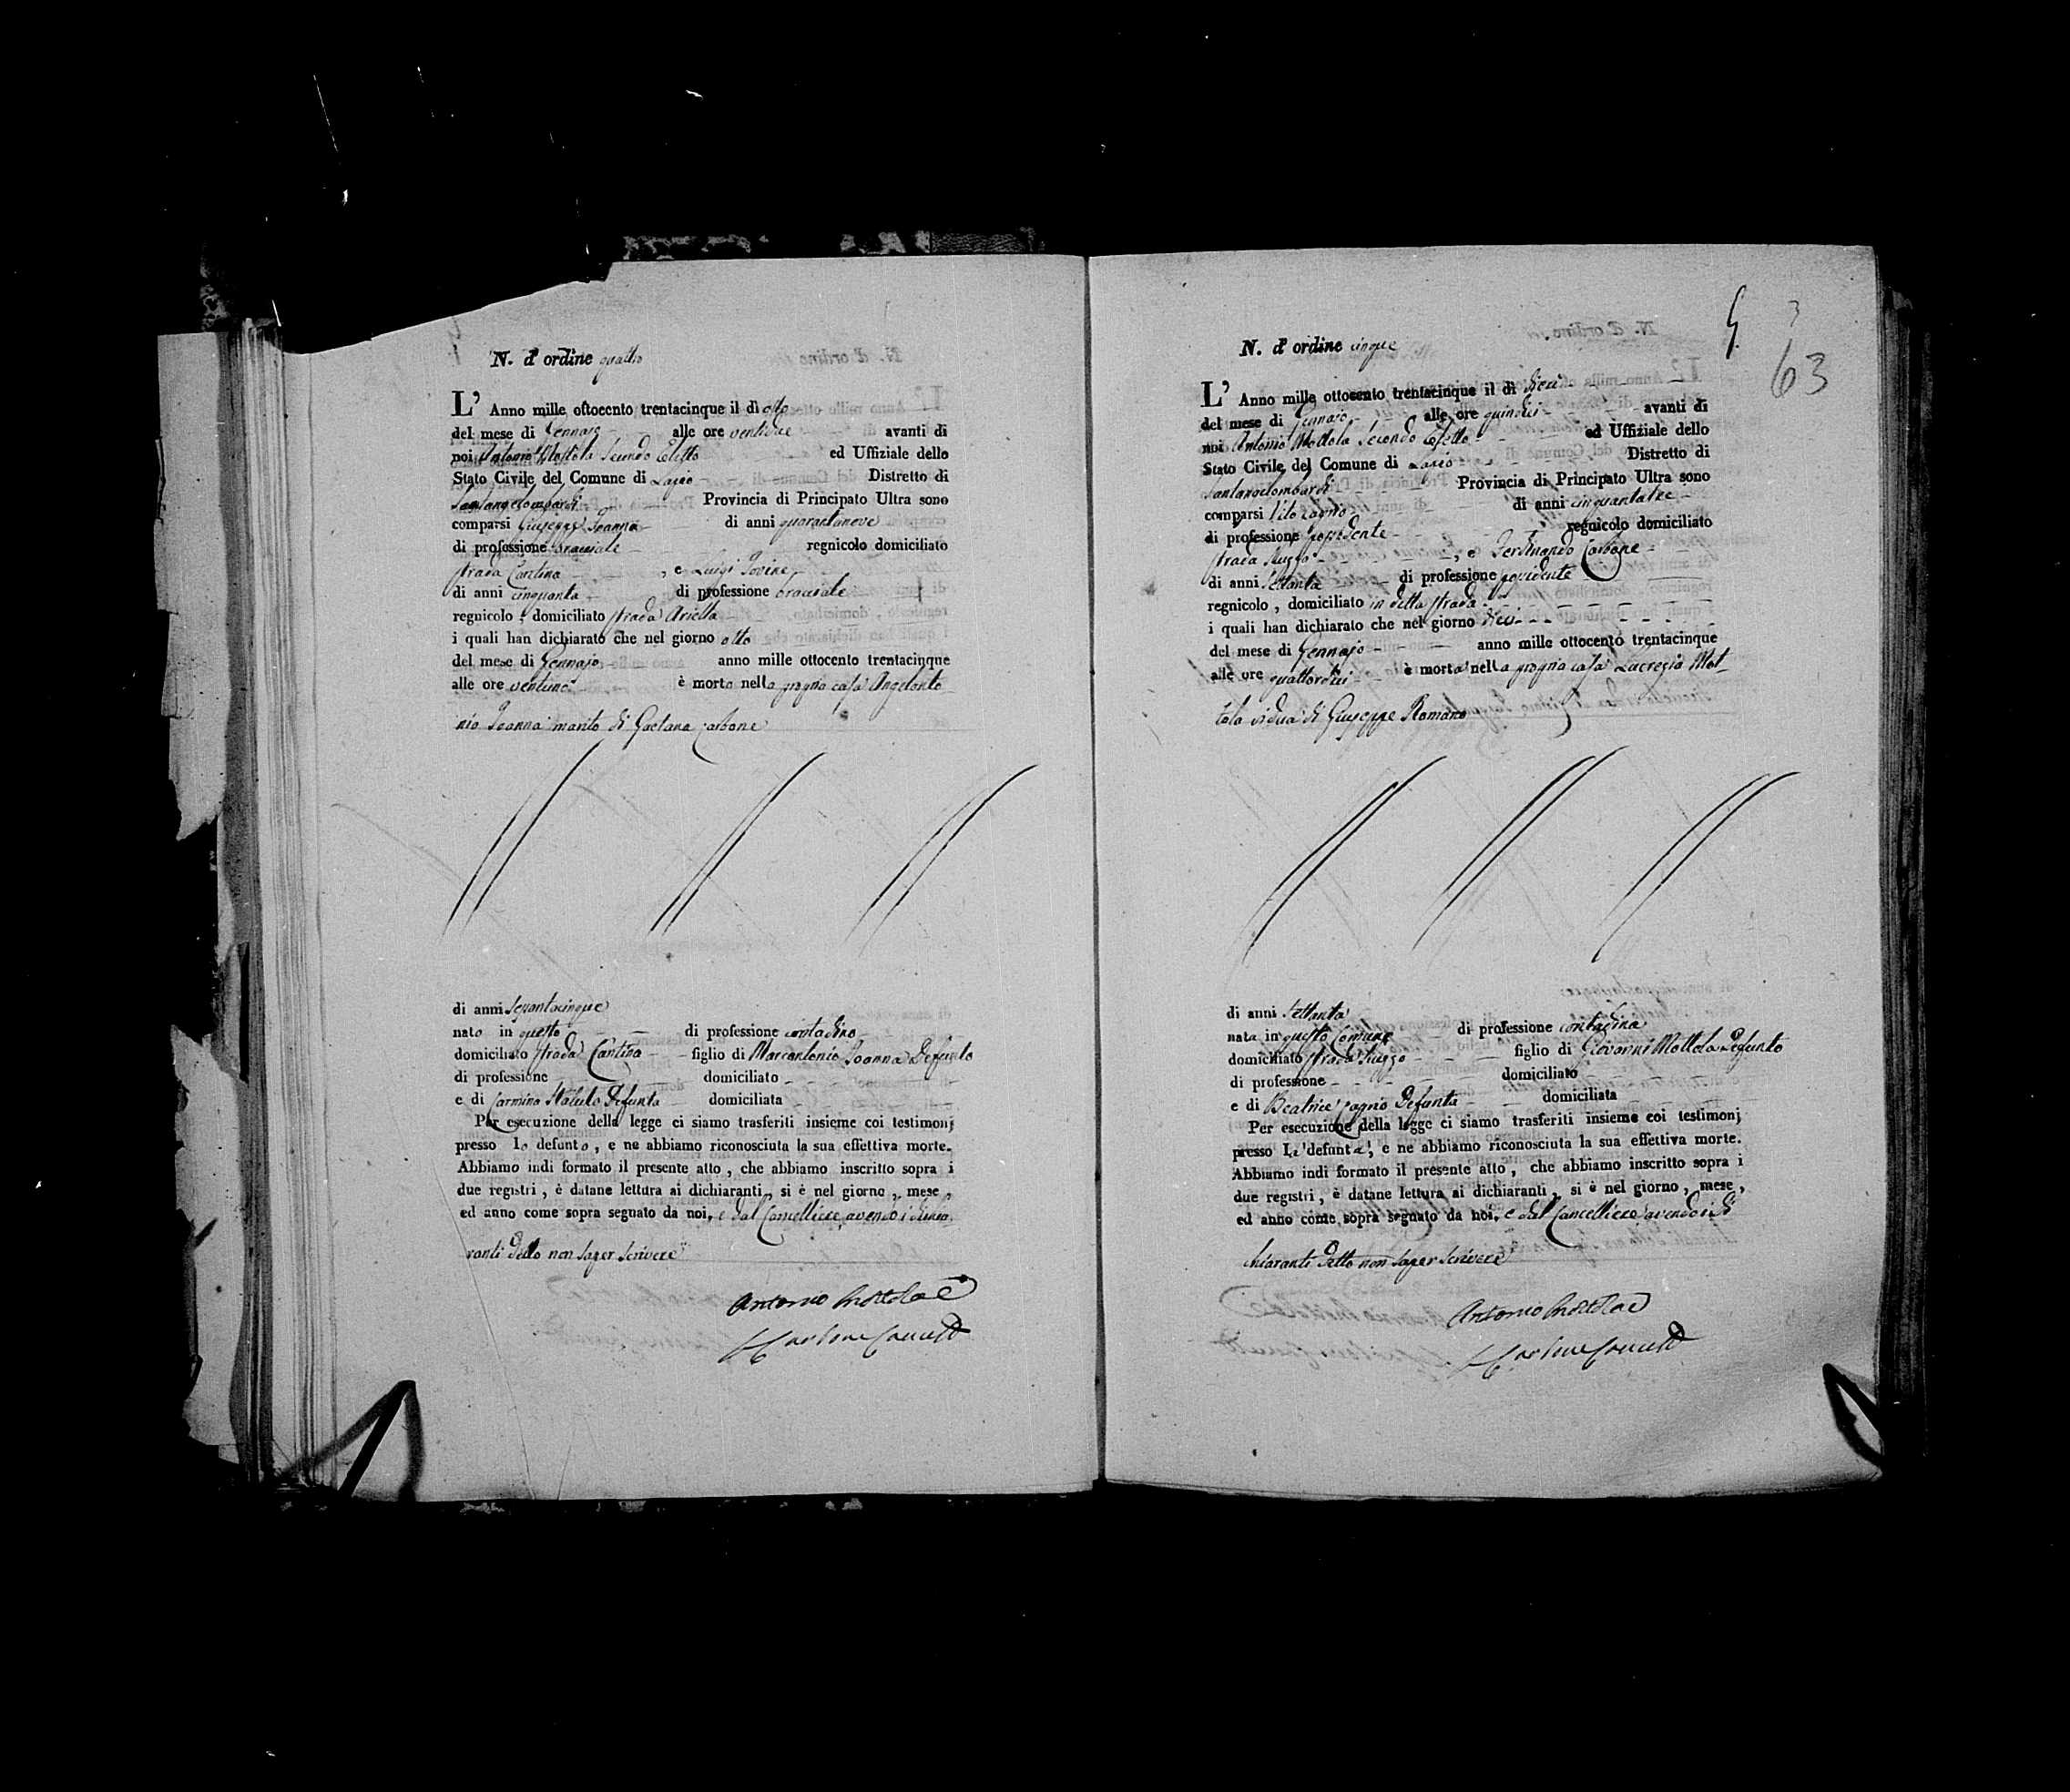 N. d'ordine quattro
L' Anno mille ottocento trentacinque il dì otto
del mese di Gennajo alle ore ventidue avanti di
noi Antonio Mottola Secondo Eletto ed Uffiziale dello
Stato Civile del Comune di Distretto di
Santangelombardi Provincia di Principato Ultra sono
comparsi Giuseppe Ioanna di anni quarantanove
di professione bracciale regnicolo domiciliato
strada Cantina , e Luigi Iovine
di anni cinquanta di professione bracciale
regnicolo , domiciliato strada Ariella
i quali han dichiarato che nel giorno otto
del mese di Gennajo anno mille ottocento trentacinque
alle ore ventuno è morto nella propria casa Angelanto
nio Ioanna marito di Gaetana Carbone
di anni
nato in questo di professione contadino
domiciliato strada Cantina figlio di Marcantonio Ioanna Defunto
di professione domiciliato
e di Carmina Defunta domiciliata
Per esecuzione della legge ci siamo trasferiti insieme coi testimonj
presso lo defunto , e ne abbiamo riconosciuta la sua effettiva morte.
Abbiamo indi formato il presente atto , che abbiamo inscritto sopra i
due registri , è datane lettura ai dichiaranti , si è nel giorno , mese ,
ed anno come sopra segnato da noi, e dal Cancelliere avendo i dichia
ranti detto non saper scrivere
Antonio Mottola
Carbone
5
3
63
N. d'ordine cinque
L' Anno mille ottocento trentacinque il dì dieci
del mese di Gennajo alle ore quindici avanti di
noi Antonio Mottola Secondo Eletto ed Uffiziale dello
Stato Civile del Comune di Distretto di
Santangelombardi Provincia di Principato Ultra sono
comparsi Vito Cagno di anni cinquantatre
di professione possidente regnicolo domiciliato
strada , e Ferdinando Carbone
di anni settanta di professione possidente
regnicolo , domiciliato in detta strada
i quali han dichiarato che nel giorno dieci
del mese di Gennajo anno mille ottocento trentacinque
alle ore quattordici è morta nella propria casa Lucrezia Mot
tola vidua di Giuseppe Romano
di anni settanta
nata in questo Comune di professione contadina
domiciliato strada figlio di Giovanni Mottola Defunto
di professione domiciliato
e di Beatrice Cagno Defunta domiciliata
Per esecuzione della legge ci siamo trasferiti insieme coi testimonj
presso la defunta , e ne abbiamo riconosciuta la sua effettiva morte.
Abbiamo indi formato il presente atto , che abbiamo inscritto sopra i
due registri , è datane lettura ai dichiaranti , si è nel giorno , mese ,
ed anno come sopra segnato da noi, e dal Cancelliere avendo i di
chiaranti detto non saper scrivere
Antonio Mottola
Carbone